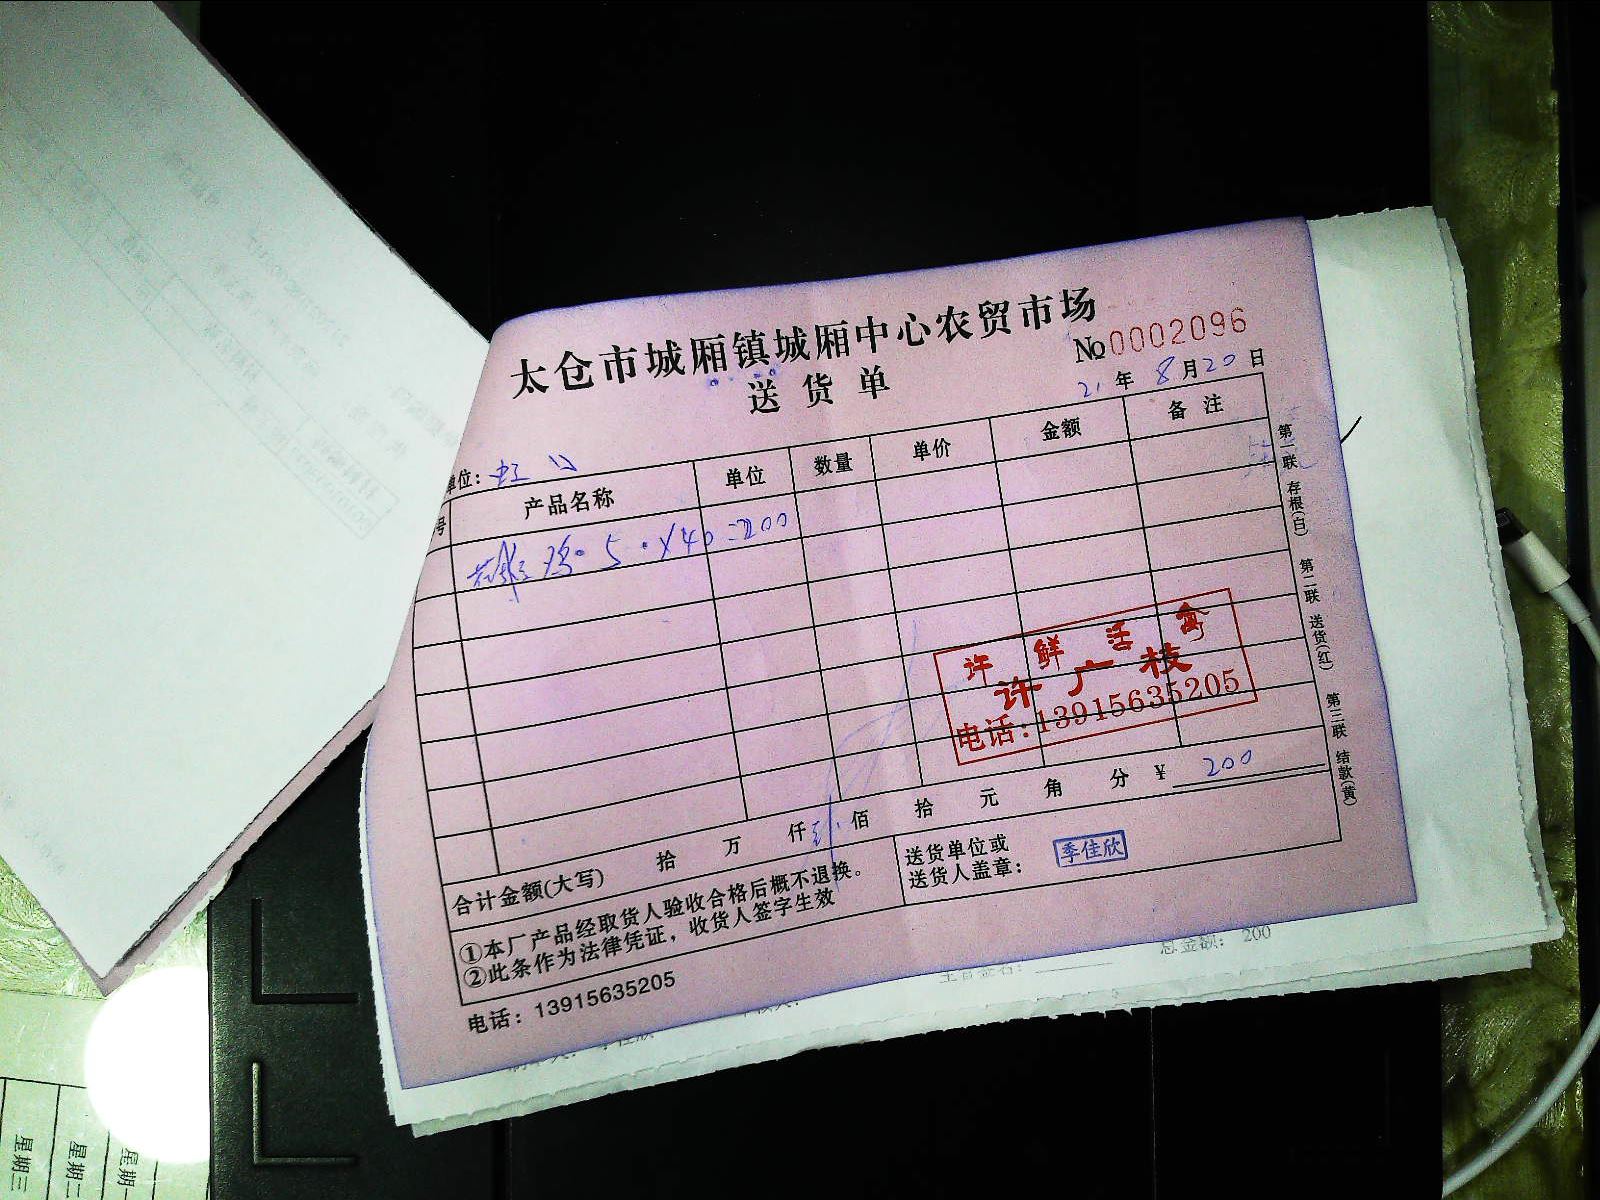 太仓市城厢镇城厢中心农贸市场
送货单
№0002096
21年8月20日
单位：虹口
号 产品名称 单位 数量 单价 金额 备注
鸡 5 ×40=200
许鲜活禽
许广枝
电话:13915635205
合计金额(大写) 拾 万 仟 佰 拾 元 角 分 ¥ 200
①本厂产品经取货人验收合格后概不退换。
②此条作为法律凭证，收货人签字生效
送货单位或
送货人盖章：
季佳欣
电话：13915635205
第一联 存根(白) 第二联 送货(红) 第三联 结款(黄)
总金额： 200
星期一
星期二
星期三